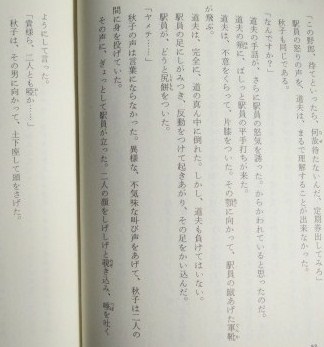 「この野郎、待てといったら、何故待たないんだ、定期券出してみろ」
駅員の怒りの声を、道夫は、まるで理解することが出来なかった。
秋子も同じである。
「なんですか?」
道夫の手話が、さらに駅員の怒気を誘った。からかわれていると思ったのだ。
道夫の頬に、ぱしっと駅員の平手打ちが来た。
道夫は、不意をくらって、片膝をついた。その顎に向かって、駅員の蹴あげた軍靴
が飛ぶ。
道夫は、完全に、道の真ん中に倒れた。しかし、道夫も負けてはいない。
駅員の足にしがみつき、反動をつけて起きあがり、その足をかい込んだ。
駅員が、どうと尻餅をついた。
「ヤメテ……」
秋子の声は言葉にならなかった。異様な、不気味な叫び声をあげて、秋子は二人の
間に身を投げていた。
その声に、ぎょっとして駅員が立った。二人の顔をしげしげと覗き込み、唾を吐く
ようにして言った。
「貴様ら、二人とも唖か……」
秋子は、その男に向かって、土下座して頭をさげた。